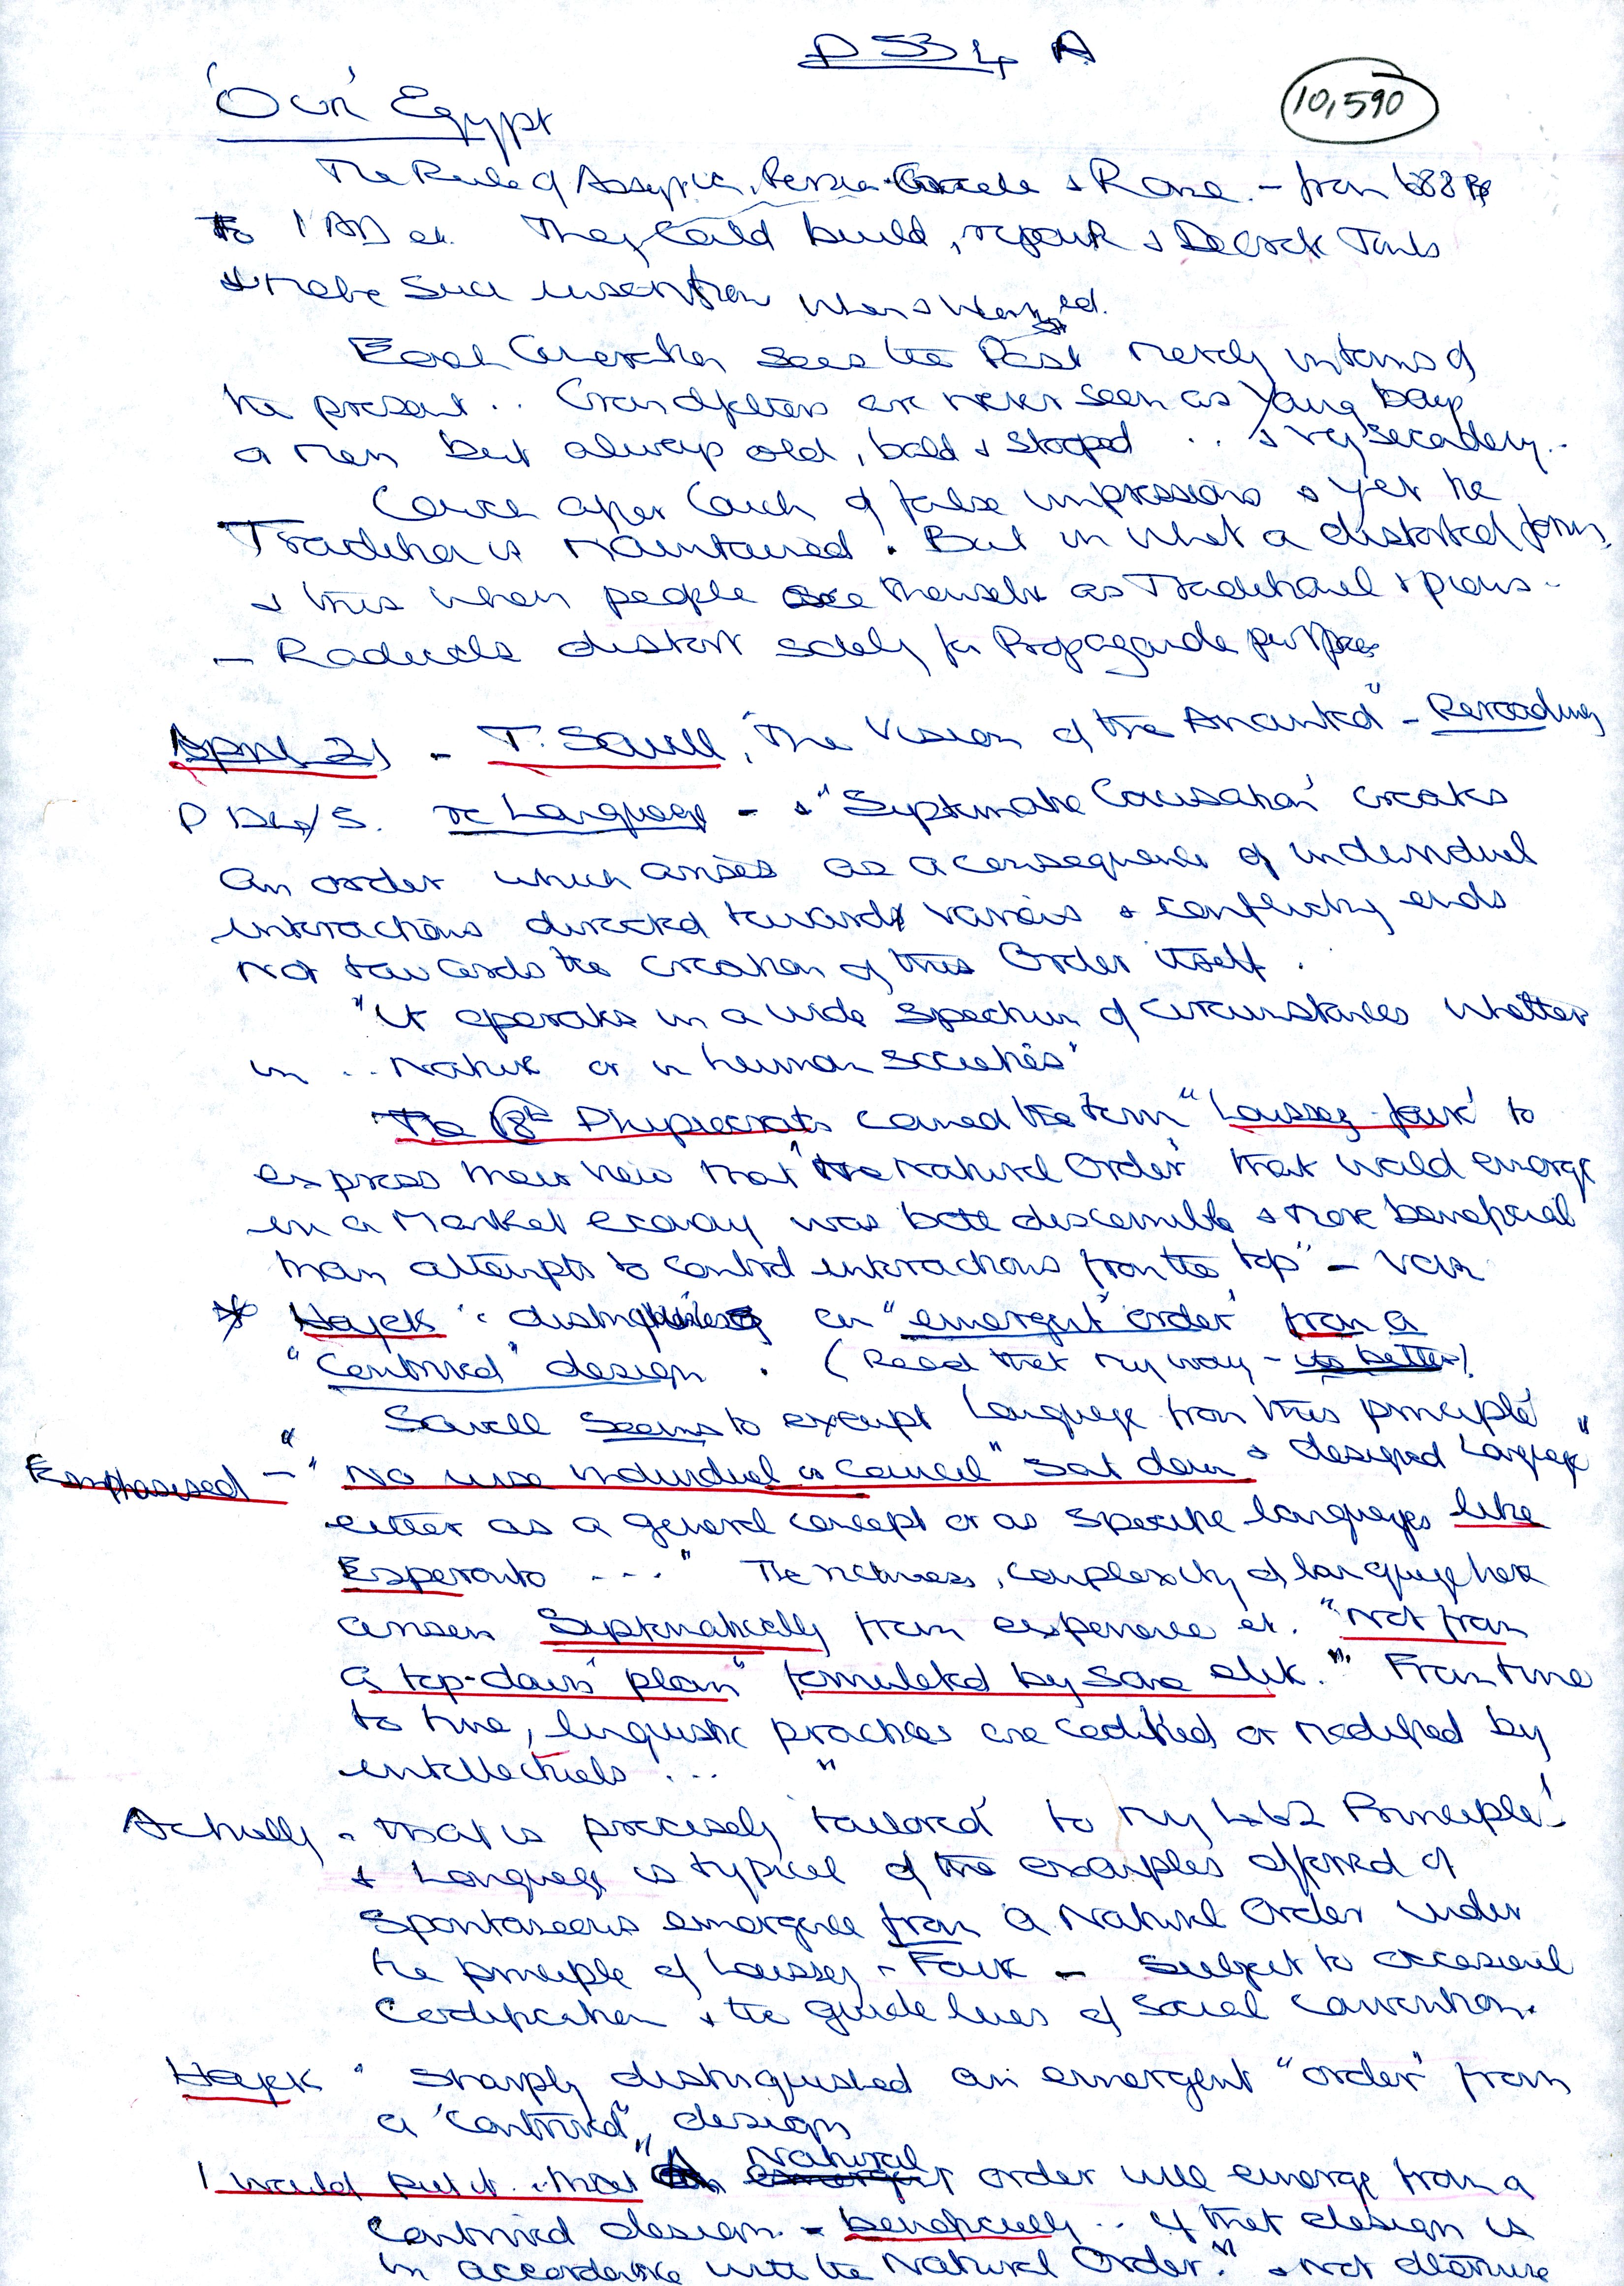 P 534 A
10,590
'Our' Egypt
The Rule of Assyria, Persia Greece & Rome. - from
To 1 AD et. They could build, repair & Decorate Tombs
& make such insertion when & wanted.
Each Generation sees the Past merely in terms of
the present .. Grandfathers are never seen as Young boys
a men but always old, bald & stooped .. & very secondary..
Layer after Layer of false impressions & yet the
Tradition is Maintained! But in what a distorted form,
& this when people see themselves as Traditional & pious -
- Radicals distort solely for Propaganda purposes
April 21 - T. Sowell, "The Vision of the Anointed" - Rereading
P /5. re Language - & "Systematic Causation' creates
an order which arises as a consequence of individual
interactions directed towards various & conflicting ends
not towards the creation of this Order itself.
"it operates in a wide spectrum of circumstances whether
in .. Nature or in human societies"
The 18th Physiocrats coined the term "Laissez-faire' to
express their view that 'the Natural Order' that would emerge
in a Market economy was both discernible & more beneficial
than attempts to control interactions from the top" -
* Hayek : distinguishes an "emergent order' from a
"Contrived" design. (Read that my way - its better)!
Sowell seems to exempt Language from this principle
Emphasised - "No wise individual or council" sat down & designed Language"
either as a general concept or as specific languages like
Esperanto ..." The richness, complexity of language have
arisen Systematically from experience et. "Not from
a top-down plan" formulated by some elite." From time
to time, linguistic practices are codified or modified by
intellectuals ... "
Actually - that is precisely 'tailored' to my Principle!
& Language is typical of the examples offered of
spontaneous emergence from a Natural Order under
the principle of Laissez-Faire - subject to occasional
Codification & the guide lines of Social Convention.
Hayek : Sharply distinguished an emergent "order' from
a 'Contrived" design
I would put it .. that "A Natural order will emerge from a
Contrived design - beneficially .. if that design is
in accordance with the Natural Order." & not otherwise